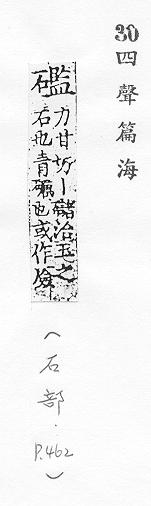 30 四聲篇海
礛
力甘切丨䃴治玉之
石也青礪也或作
(石部.P.462)